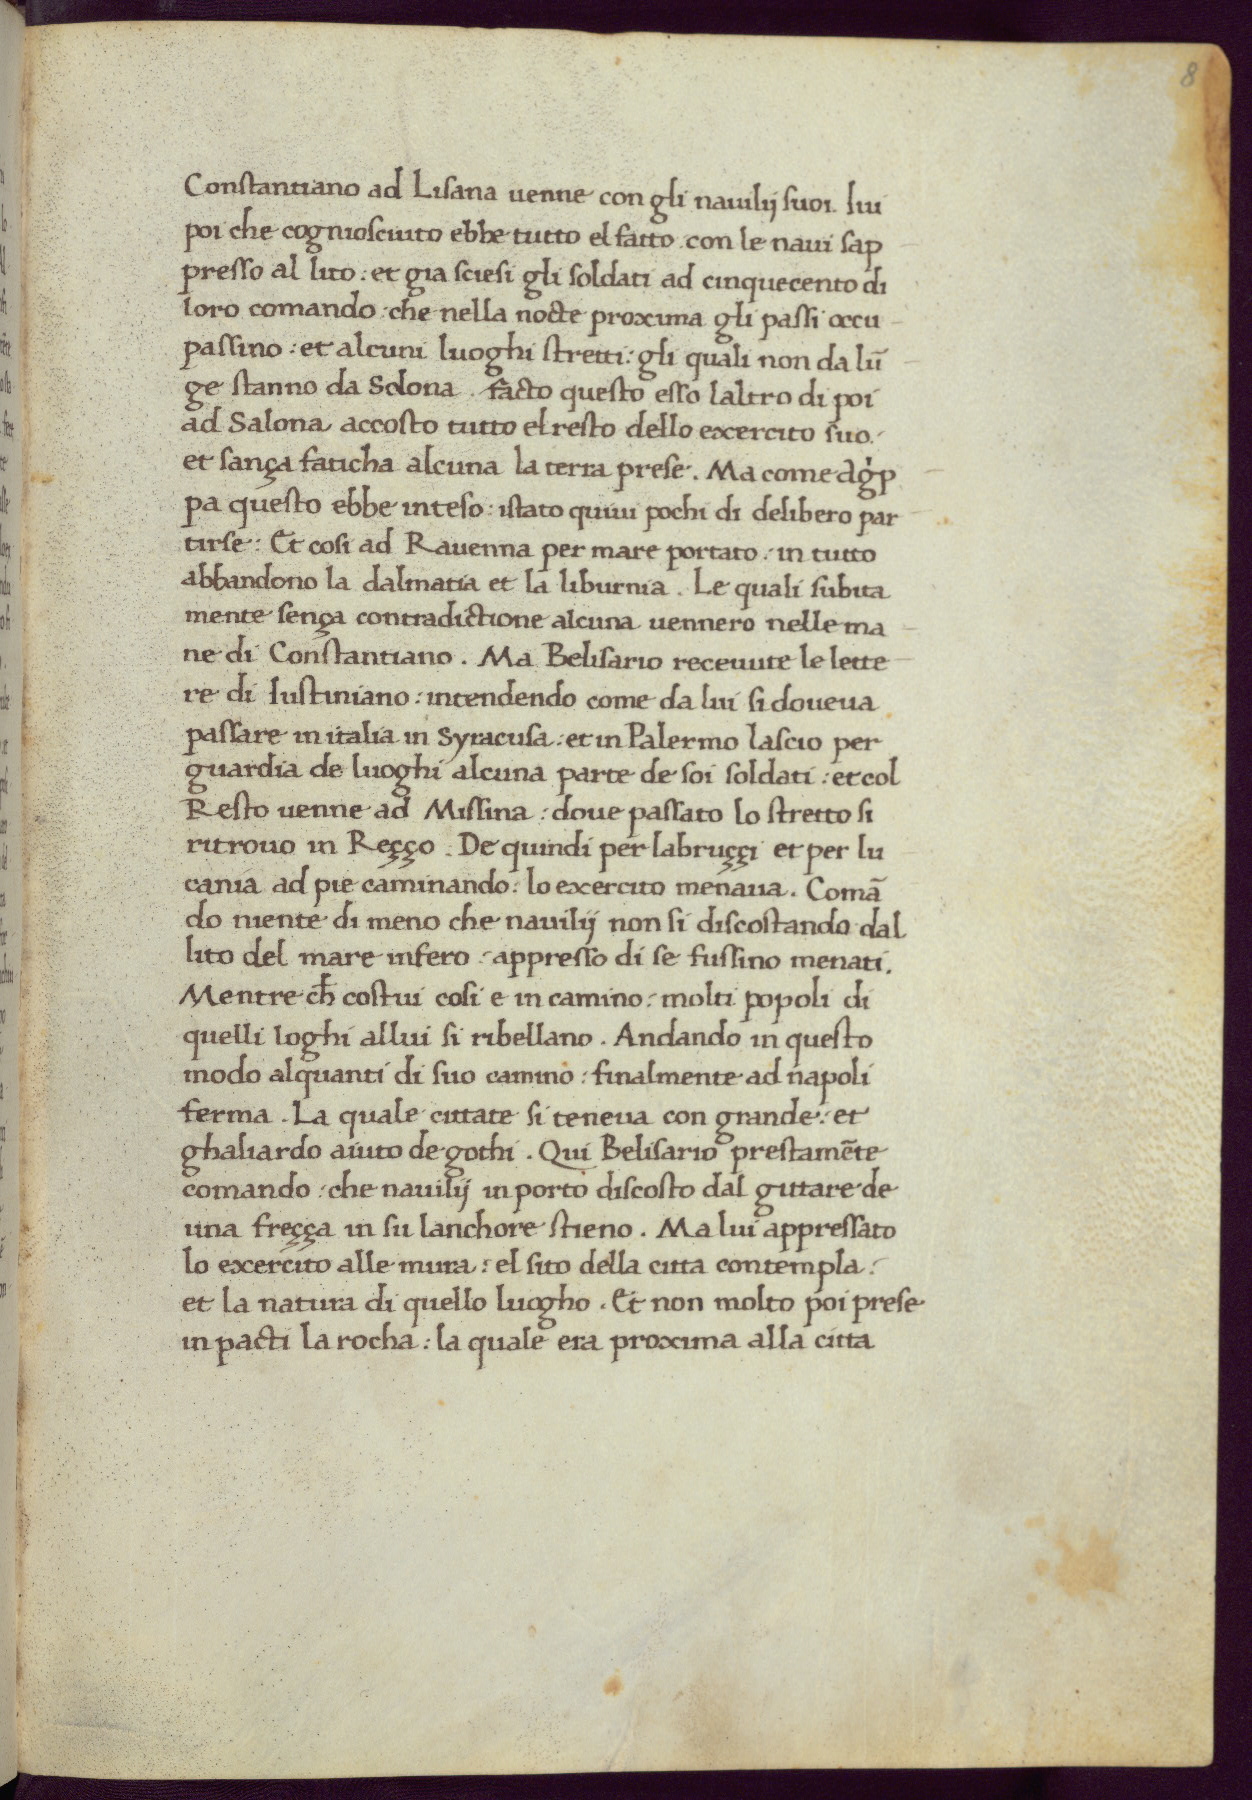 8
Constantiano ad Lisana uenne con gli nauilij suoi. lui
poi che cogniosciuto ebbe tutto el fatto. con le naui sap
presso al lito: et gia sciesi gli soldati ad cinquecento di
loro comando: che nella nocte proxima gli passi occu
passino: et alcuni luoghi stretti: gli quali non da lū
ge stanno da Solona. facto questo esso laltro di poi
ad Salona accosto tutto el resto dello exercito suo:
et sança faticha alcuna la terra prese. Ma come
pa questo ebbe inteso: istato quiui pochi di delibero par
tirse: Et cosi ad Rauenna per mare portato: in tutto
abbandono la dalmatia et la liburnia. Le quali subita
mente sença contradictione alcuna uennero nelle ma
ne di Constantiano. Ma Belisario receuute le lette
re di Iustiniano: intendendo come da lui si doueua
passare in italia in Syracusa: et in Palermo lascio per
guardia de luoghi alcuna parte de soi soldati: et col
Resto uenne ad Missina: doue passato lo stretto si
ritrouo in Reçço. De quindi per labruççi et per lu
cania ad pie caminando: lo exercito menaua. Comā
do niente di meno che nauilij non si discostando dal
lito del mare infero: appresso di se fussino menati.
Mentre ch̄ costui cosi e in camino: molti popoli di
quelli loghi allui si ribellano. Andando in questo
modo alquanti di suo camino: finalmente ad napoli
ferma. La quale cittate si teneua con grande: et
ghaliardo aiuto de gothi. Qui Belisario prestamēte
comando: che nauilij in porto discosto dal gittare de
una freçça in su lanchore stieno. Ma lui appressato
lo exercito alle mura: el sito della citta contempla:
et la natura di quello luogho. Et non molto poi prese
in pacti la rocha: la quale era proxima alla citta